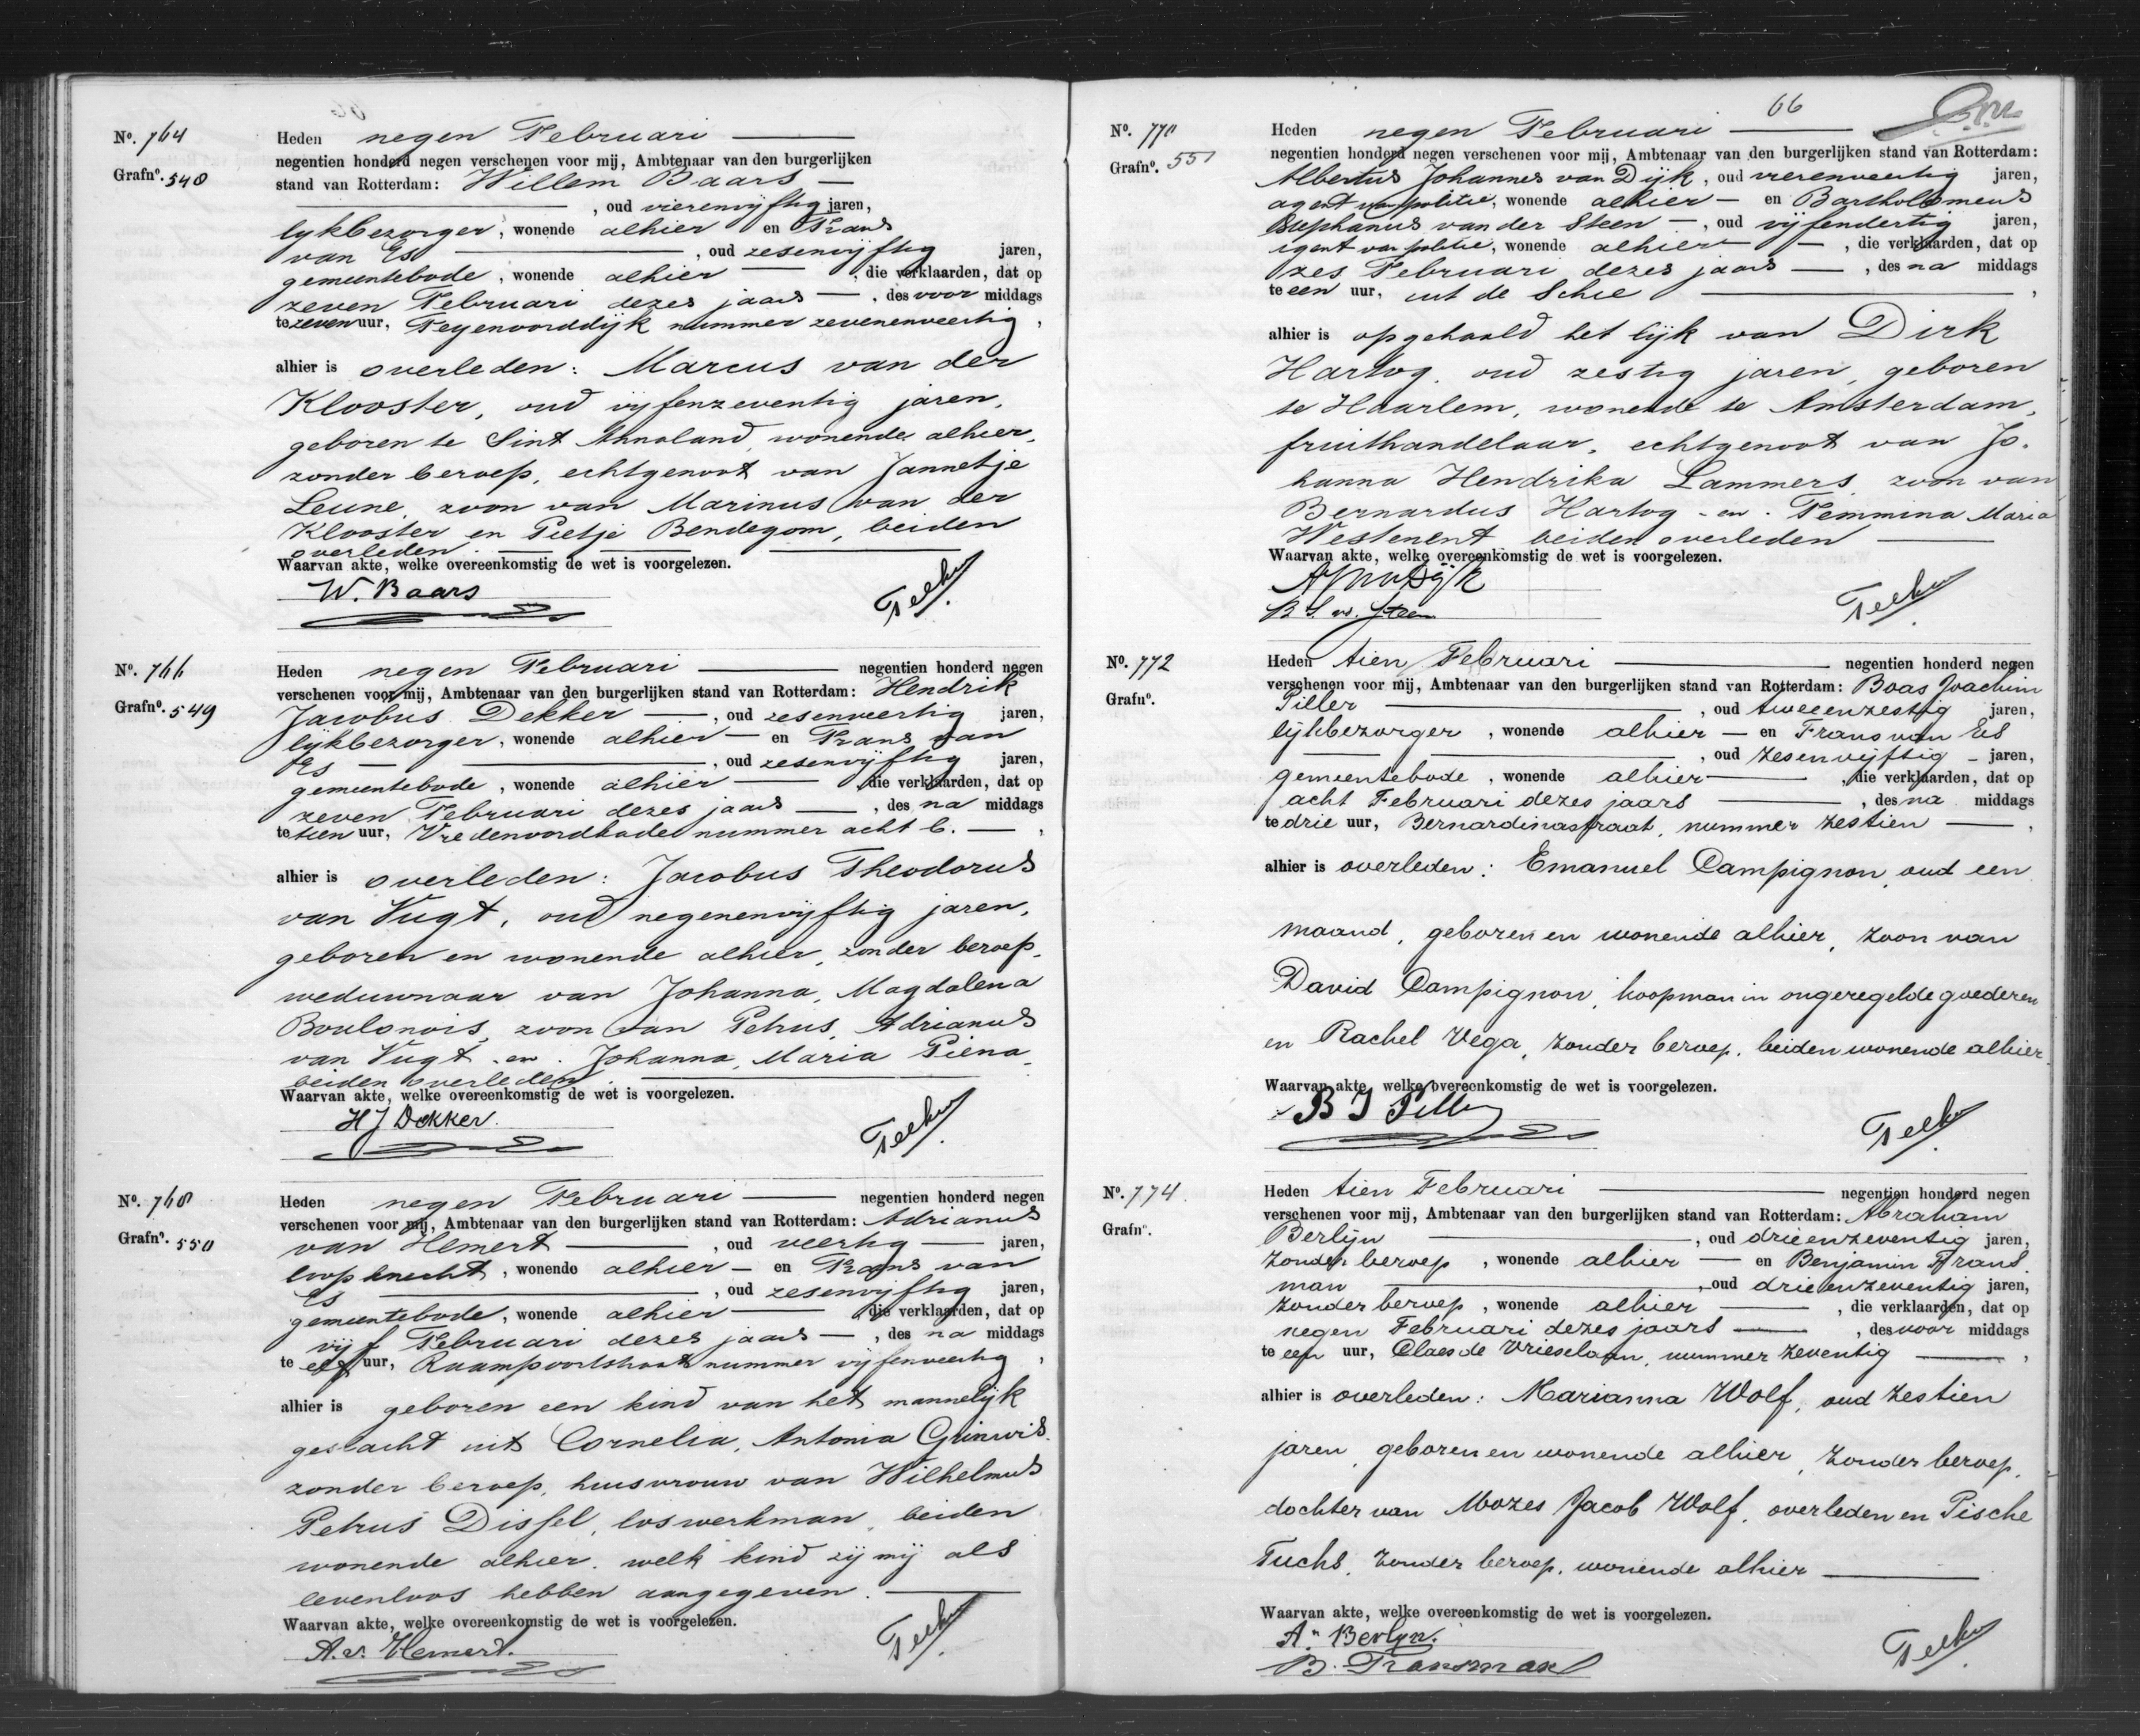 Nº. 764
Grafnº. 548
Heden negen Februari
negentien honderd negen verschenen voor mij, Ambtenaar van den burgerlijken
stand van Rotterdam: Willem Baars
, oud vierenvijftig jaren,
lykbezorger, wonende alhier en Frans
van Es , oud zesenvijftig jaren,
gemeentebode, wonende alhier , die verklaarden, dat op
zeven Februari dezes jaars , des voor middags
te zeven uur, Feyenoorddijk nummer zevenenveertig,
alhier is overleden: Marcus van der
Klooster, oud vijfenzeventig jaren,
geboren te Sint Annaland, wonende alhier,
zonder beroep, echtgenoot van Jannetje
Leune, zoon van Marinus van der
Klooster en Pietje Bendegom, beiden
overleden.
Waarvan akte, welke overeenkomstig de wet is voorgelezen.
W. Baars
Nº. 766
Grafnº. 549
Heden negen Februari negentien honderd negen
verschenen voor mij, Ambtenaar van den burgerlijken stand van Rotterdam: Hendrik
Jacobus Dekker , oud zesenveertig jaren,
lijkbezorger, wonende alhier en Frans van
Es , oud zesenvijftig jaren,
gemeentebode, wonende alhier die verklaarden, dat op
zeven Februari dezes jaars , des na middags
te tien uur, Vredenoordkade nummer acht b.
alhier is overleden: Jacobus Theodorus
van Vugt, oud negenenvijftig jaren,
geboren en wonende alhier, zonder beroep,
weduwnaar van Johanna, Magdalena
Boulonois, zoon van Petrus, Adrianus
van Vugt en Johanna, Maria Piena
beiden overleden.
Waarvan akte, welke overeenkomstig de wet is voorgelezen.
H J Dekker.
Nº. 768
Grafnº. 550
Heden negen Februari negentien honderd negen
verschenen voor mij, Ambtenaar van den burgerlijken stand van Rotterdam: Adrianus
van Hemert , oud veertig jaren,
loopknecht, wonende alhier en Frans van
Es , oud zesenvijftig jaren,
gemeentebode, wonende alhier die verklaarden, dat op
vijf Februari dezes jaars , des na middags
te elf uur, Raampoortstraat nummer vijfenveertig,
alhier is geboren een kind van het mannelijk
geslacht uit Cornelia, Antonia Grinwis,
zonder beroep, huisvrouw van Wilhelmus
Petrus Dissel, loswerkman, beiden
wonende alhier. welk kind zij mij als
levenloos hebben aangegeven.
Waarvan akte, welke overeenkomstig de wet is voorgelezen.
A. v. Hemert.
66
Nº. 770
Grafnº. 551
Heden negen Februari
negentien honderd negen verschenen voor mij, Ambtenaar van den burgerlijken stand van Rotterdam:
Albertus Johannes van Dijk, oud vierenveertig jaren,
agent van politie, wonende alhier en Bartholomeus
Stephanus van der Steen , oud vijfendertig jaren,
agent van politie, wonende alhier , die verklaarden, dat op
zes Februari dezes jaars , des na middags
te een uur, uit de Schie
alhier is opgehaald het lijk van Dirk
Hartog, oud zestig jaren, geboren
te Haarlem, wonende te Amsterdam,
fruithandelaar, echtgenoot van Jo-
hanna Hendrika Lammers, zoon van
Bernardus Hartog en Femmina Maria
Westenent, beiden overleden
Waarvan akte, welke overeenkomstig de wet is voorgelezen.
AJ van Dijk
B S v. d. Steen
Nº. 772
Grafnº.
Heden tien Februari negentien honderd negen
verschenen voor mij, Ambtenaar van den burgerlijken stand van Rotterdam: Boas Joachim
Piller , oud tweeenzestig jaren,
lijkbezorger, wonende alhier en Frans van Es
, oud zesenvijftig jaren,
gemeentebode, wonende alhier , die verklaarden, dat op
acht Februari dezes jaars , des na middags
te drie uur, Bernardinastraat, nummer zestien
alhier is overleden: Emanuel Campignon, oud een
maand, geboren en wonende alhier, zoon van
David Campignon, koopman in ongeregelde goederen
en Rachel Vega, zonder beroep, beiden wonende alhier.
Waarvan akte, welke overeenkomstig de wet is voorgelezen.
B J Piller
Nº. 774.
Grafnº.
Heden tien Februari negentien honderd negen
verschenen voor mij, Ambtenaar van den burgerlijken stand van Rotterdam: Abraham
Berlijn , oud drieenzeventig jaren,
zonder beroep, wonende alhier en Benjamin Frans-
man , oud drieenzeventig jaren,
zonder beroep, wonende alhier , die verklaarden, dat op
negen Februari dezes jaars , des voor middags
te een uur, Claes de Vrieselaan, nummer zeventig
alhier is overleden: Marianna Wolf, oud zestien
jaren, geboren en wonende alhier, zonder beroep,
dochter van Mozes Jacob Wolf, overleden en Pische
Fuchs, zonder beroep, wonende alhier
Waarvan akte, welke overeenkomstig de wet is voorgelezen.
A. Berlyn.
B. Fransman